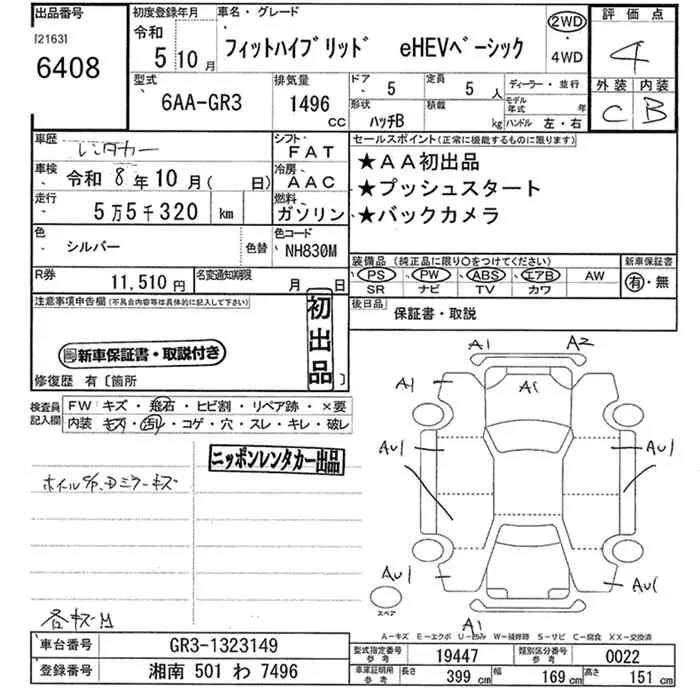 出品番号
[2163]
6408
初度登録年月
令和
5 10月
車名・グレード
フィットハイブリッド eHEVベーシック
2WD
・
4WD
評価点
4
外装 内装
C B
型式
6AA-GR3
排気量
1496
CC
ドア 5
定員 5 人
ディーラー・並行
形状 ハッチB
積載 kg
モデル年式 年
ハンドル 左・右
車歴 レンタカー
車検 令和 8年10月( 日)
走行 5万5千320 km
色 シルバー 色替
R券 11,510円
名変通知期限 月 日
シフト FAT
冷房 AAC
燃料 ガソリン
色コード NH830M
セールスポイント(正常に機能するものに限ります)
★AA初出品
★プッシュスタート
★バックカメラ
装備品(純正品に限り○をつけてください)
PS PW ABS エアB AW
SR ナビ TV カワ
新車保証書
有・無
後日品 保証書・取説
注意事項申告欄(不具合内容等は具体的に記入して下さい)
新車保証書・取説付き
初出品
修復歴 有〔箇所 〕
検査員記入欄
FW キズ・飛石・ヒビ割・リペア跡・×要
内装 キズ・汚レ・コゲ・穴・スレ・キレ・破レ
ニッポンレンタカー出品
各キズ
A1 A2
A1 A1
AU1 AU1
AU1 AU1
A1
スペア
A-キズ E-エクボ U-凹み W-補修跡 S-サビ C-腐食 XX-交換済
車台番号 GR3-1323149
登録番号 湘南 501 わ 7496
型式指定番号 参考 19447
類別区分番号 参考 0022
車庫証明用 参考
長さ 399 cm
幅 169 cm
高さ 151 cm